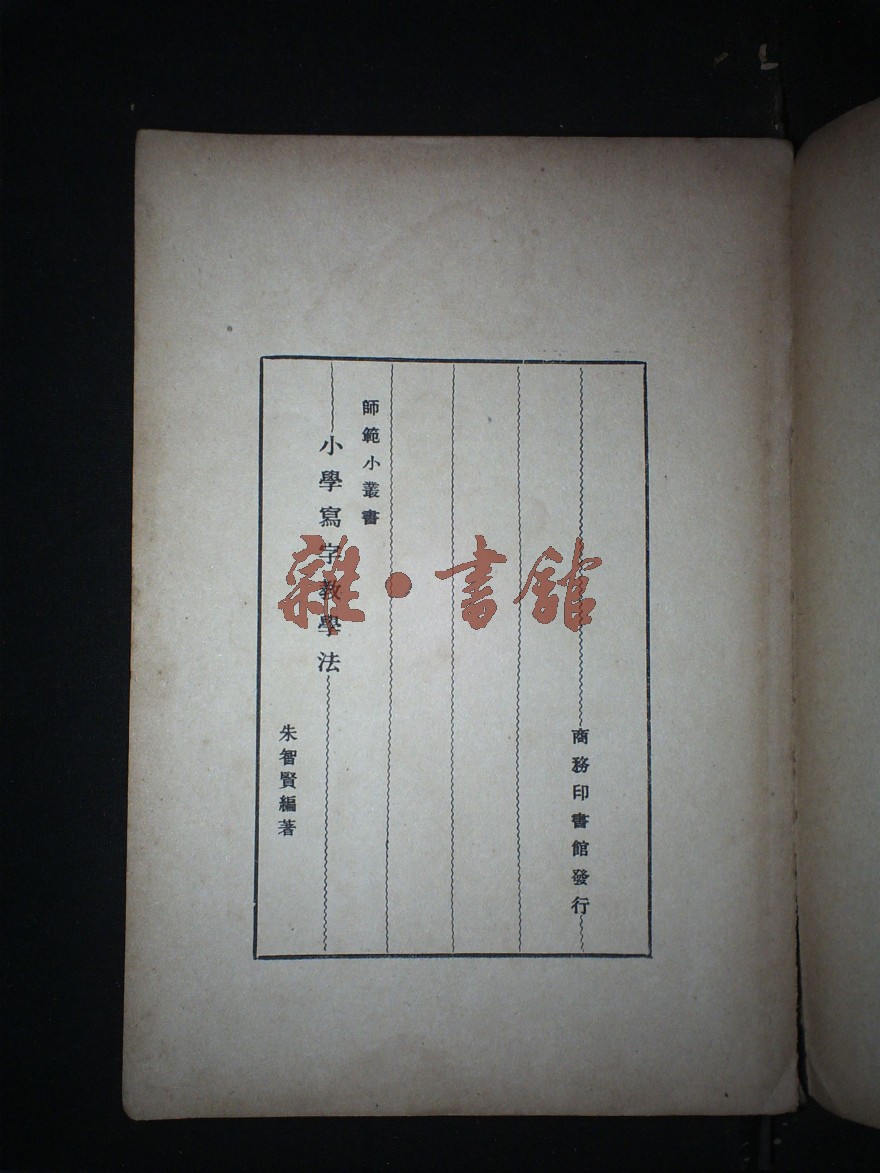 師範小叢書
小學寫字教學法
朱智賢編著
商務印書館發行
雜·書館